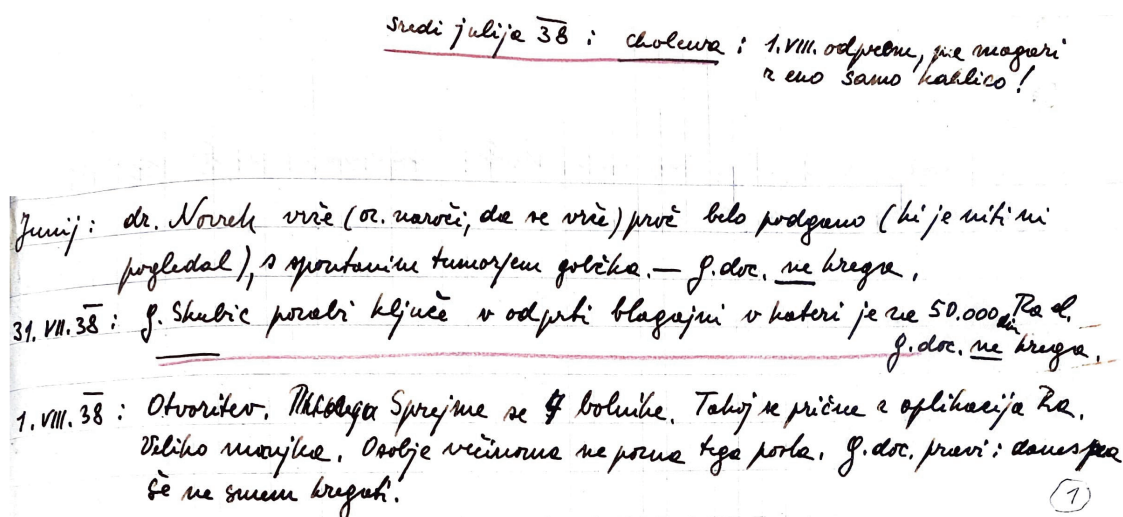 sredi julija 38 : cholera : 1. VIII. odprem, pa magari
z eno samo kahlico!
Junij : dr. Novak vrže (oz. naroči, da se vrže) proč belo podgano (ki je niti ni
pogledal), s spontanim tumorjem gobčka. — G. doc. ne krega.
31. VII. 38 : g. Skubic pozabi ključe v odprti blagajni v kateri je za 50.000 din Ra el.
G. doc. ne krega.
1. VIII. 38 : Otvoritev. Sprejme se 7 bolnike. Takoj se prične z aplikacija Ra.
Veliko manjka. Osobje večinoma ne pozna tega posla. G. doc. pravi : danes pa
še ne smem kregati.
1